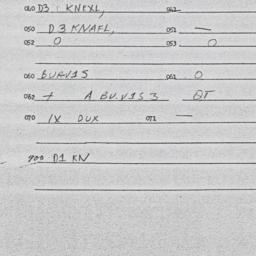 040 D3 : KNEXL, 042
050 D3 KNAFL, 051 —
052 O 053 O
060 BURV15 061 O
062 + A BU.V1S 3 QT
070 IX DUX 071 —
900 D1 KN